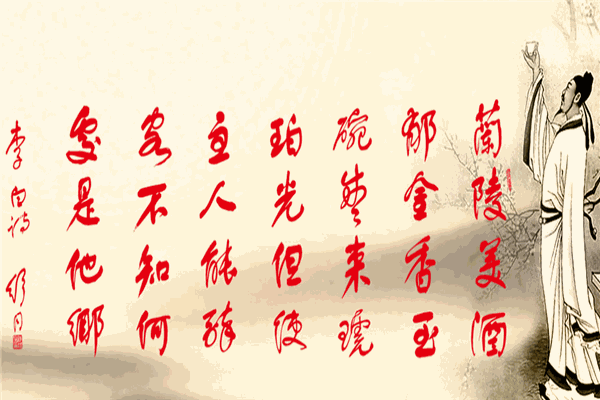 蘭陵美酒
郁金香玉
碗盛来琥
珀光但使
主人能醉
客不知何
處是他鄉
李白詩 舒同